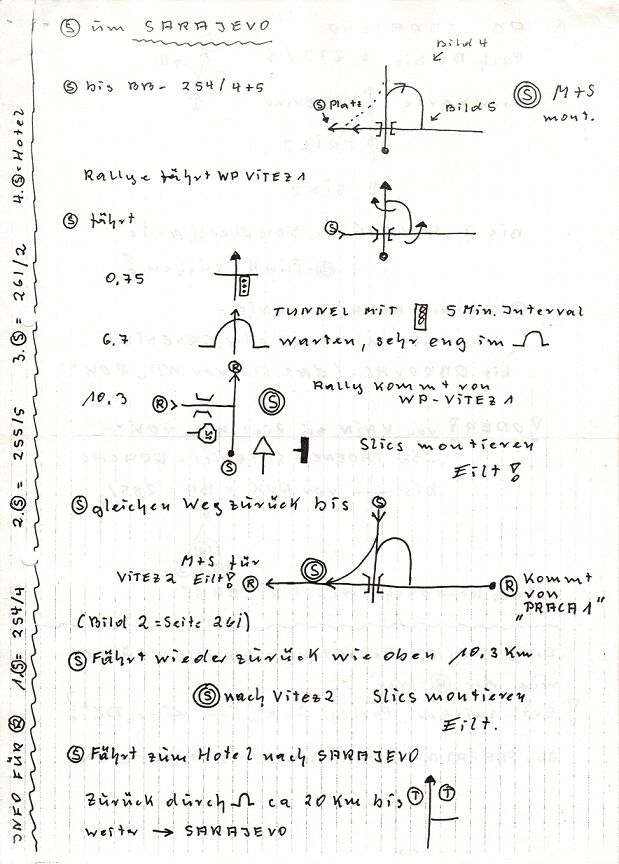 Ⓢ üm SARAJEVO
Bild 4
Ⓢ bis BB- 254/4+5
Ⓢ Platz
Bild 5
Ⓢ M+S
mont.
Rallye fährt WP ViTEZ 1
Ⓢ fährt
Ⓢ
0.75
TUNNEL MiT 5 Min. Interval
6.7 warten, sehr eng im
Ⓡ
10.3
Ⓡ
Ⓢ
Rally kommt von
WP-ViTEZ 1
Slics montieren
Eilt!
Ⓢ
Ⓢ gleichen Weg zurück bis
Ⓢ
M+S für
ViTEZ 2 Eilt!
Ⓡ
Ⓢ
Ⓡ Kommt
von
"PRACA 1"
(Bild 2 = Seite 261)
Ⓢ Fährt wieder zurück wie oben 10.3 Km
Ⓢ nach Vitez 2 Slics montieren
Eilt.
Ⓢ Fährt zum Hotel nach SARAJEVO
Zurück durch ca 20 Km bis Ⓣ Ⓣ
weiter → SARAJEVO
INFO FÜR Ⓡ 1.Ⓢ= 254/4 2.Ⓢ= 255/5 3.Ⓢ= 261/2 4.Ⓢ=Hotel